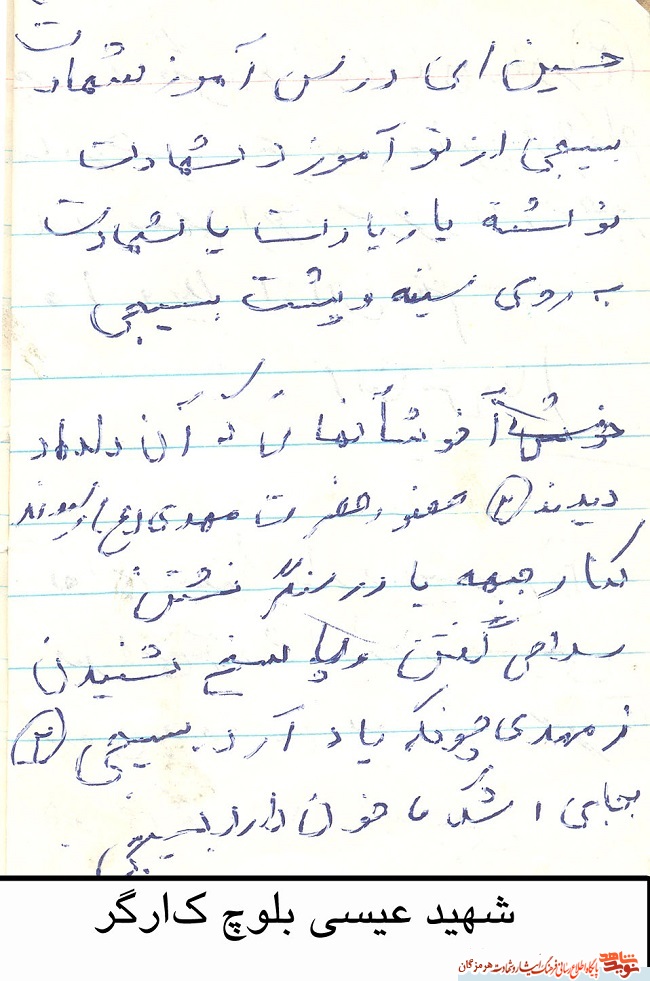 حسین ای درس آموز شهادت
بسیجی از تو آموزد شهادت
نوشته یا زیارت یا شهادت
به روی سینه و پشت بسیجی
خوشا آنها که آن دلدار
دیدند (۲) حضرت مهدی (عج)
کنار جبهه یا در سنگر نشستن
سلامی گفتن و پاسخ شنیدن
ز مهدی چونکه یاد آرد بسیجی (۲)
بجای اشک خون دارد بسیجی
شهید عیسی بلوچ کارگر
نوید شاهد پایگاه اطلاع رسانی فرهنگ ایثار و شهادت هرمزگان